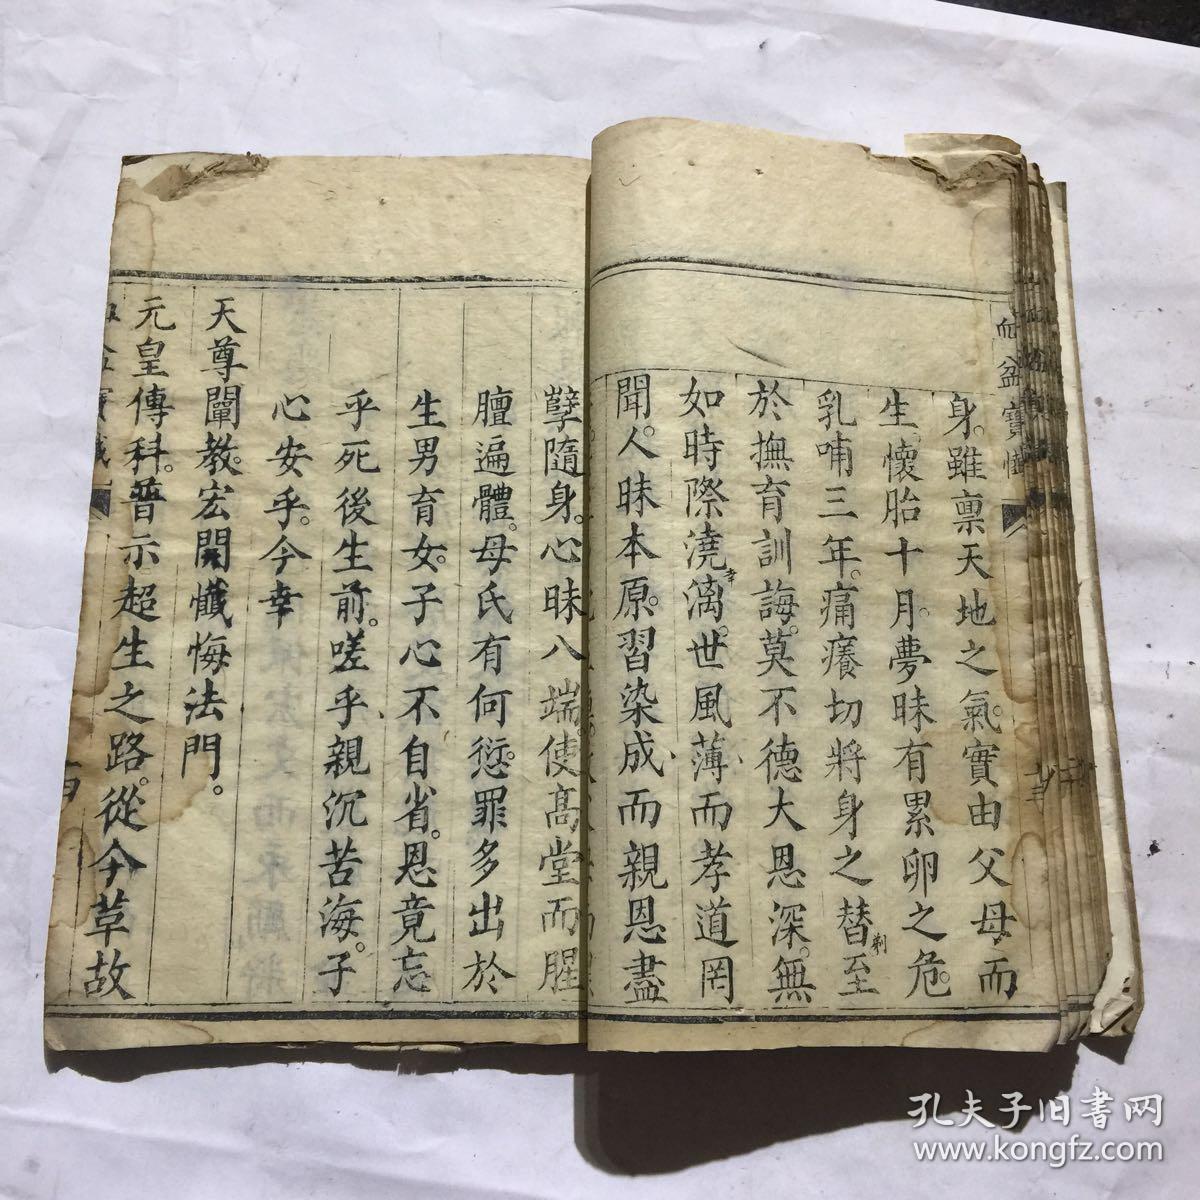 血盆寶懺
身。雖禀天地之氣。實由父母而
生。懷胎十月。夢昧有累卵之危。
乳哺三年。痛癢切將身之替。至
於撫育訓誨。莫不德大恩深。無
如時際澆漓。世風薄而孝道罔
聞。人昧本原。習染成而親恩盡
孽隨身。心昧八端。使髙堂而腥
膻遍體。母氏有何愆。罪多出於
生男育女。子心不自省。恩竟忘
乎死後生前。嗟乎親沉苦海。子
心安乎。今幸
天尊闡教。宏開懺悔法門。
元皇傳科。普示超生之路。從今草故
孔夫子旧书网
www.kongfz.com